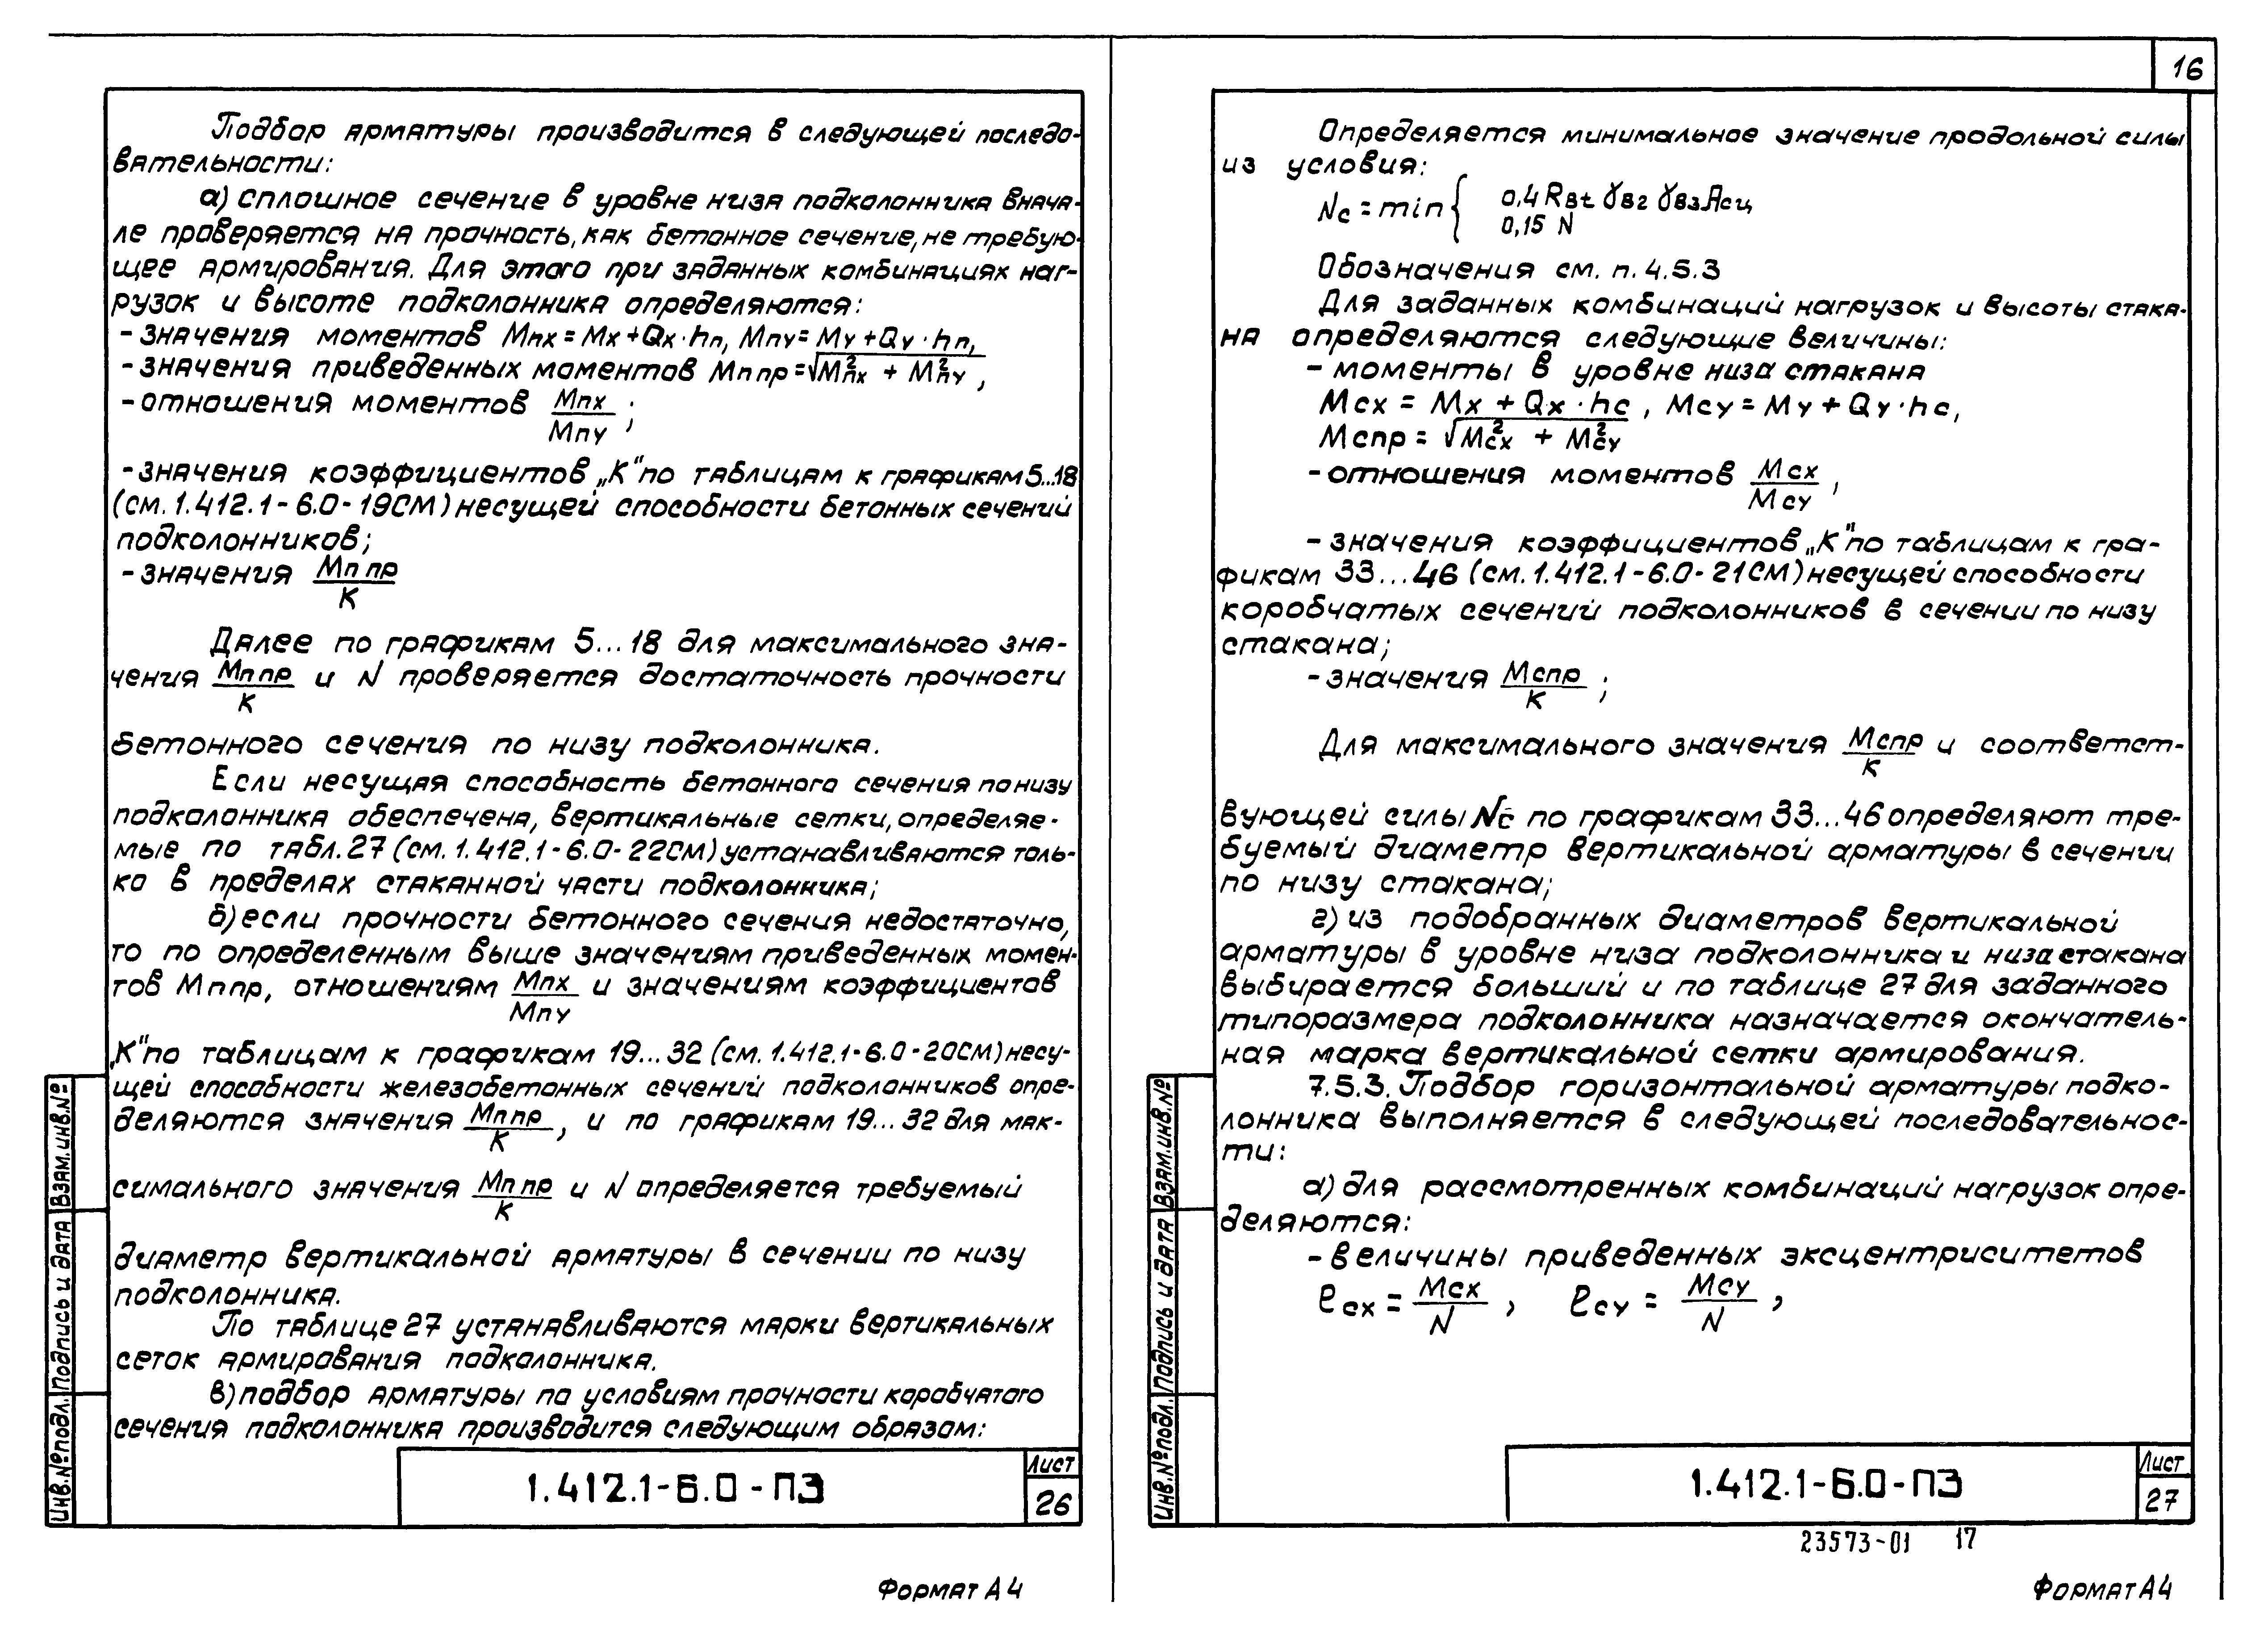 Подбор арматуры производится в следующей последо-
вательности:
а) сплошное сечение в уровне низа подколонника внача-
ле проверяется на прочность, как бетонное сечение, не требую-
щее армирования. Для этого при заданных комбинациях наг-
рузок и высоте подколонника определяются:
- значения моментов Mпx = Mx + Qx · hп, Mпy = My + Qy · hп,
- значения приведенных моментов Mп пр = √M²пx + M²пy,
- отношения моментов Mпx / Mпy;
- значения коэффициентов „К" по таблицам к графикам 5...18
(см. 1.412.1-6.0-19СМ) несущей способности бетонных сечений
подколонников;
- значения Mп пр / К
Далее по графикам 5...18 для максимального зна-
чения Mп пр / К и N проверяется достаточность прочности
бетонного сечения по низу подколонника.
Если несущая способность бетонного сечения по низу
подколонника обеспечена, вертикальные сетки, определяе-
мые по табл. 27 (см. 1.412.1-6.0-22СМ) устанавливаются толь-
ко в пределах стаканной части подколонника;
б) если прочности бетонного сечения недостаточно,
то по определенным выше значениям приведенных момен-
тов Mп пр, отношениям Mпx / Mпy и значениям коэффициентов
„К" по таблицам к графикам 19...32 (см. 1.412.1-6.0-20СМ) несу-
щей способности железобетонных сечений подколонников опре-
деляются значения Mп пр / К, и по графикам 19...32 для мак-
симального значения Mп пр / К и N определяется требуемый
диаметр вертикальной арматуры в сечении по низу
подколонника.
По таблице 27 устанавливаются марки вертикальных
сеток армирования подколонника.
в) подбор арматуры по условиям прочности коробчатого
сечения подколонника производится следующим образом:
Инв.№ подл. Подпись и дата Взам.инв.№
1.412.1-6.0-ПЗ
Лист
26
Формат А4
16
Определяется минимальное значение продольной силы
из условия:
Nc = min { 0,4 Rвt γв2 γв3 Aсц
0,15 N
Обозначения см. п. 4.5.3
Для заданных комбинаций нагрузок и высоты стака-
на определяются следующие величины:
- моменты в уровне низа стакана
Mcx = Mx + Qx · hc, Mcy = My + Qy · hc,
Mспр = √M²cx + M²cy
- отношения моментов Mcx / Mcy,
- значения коэффициентов „К" по таблицам к гра-
фикам 33...46 (см. 1.412.1-6.0-21СМ) несущей способности
коробчатых сечений подколонников в сечении по низу
стакана;
- значения Mспр / К;
Для максимального значения Mспр / К и соответст-
вующей силы Nc по графикам 33...46 определяют тре-
буемый диаметр вертикальной арматуры в сечении
по низу стакана;
г) из подобранных диаметров вертикальной
арматуры в уровне низа подколонника и низа стакана
выбирается больший и по таблице 27 для заданного
типоразмера подколонника назначается окончатель-
ная марка вертикальной сетки армирования.
7.5.3. Подбор горизонтальной арматуры подко-
лонника выполняется в следующей последовательнос-
ти:
а) для рассмотренных комбинаций нагрузок опре-
деляются:
- величины приведенных эксцентриситетов
ecx = Mcx / N, ecy = Mcy / N,
Инв.№ подл. Подпись и дата Взам.инв.№
1.412.1-6.0-ПЗ
Лист
27
23573-01 17
Формат А4